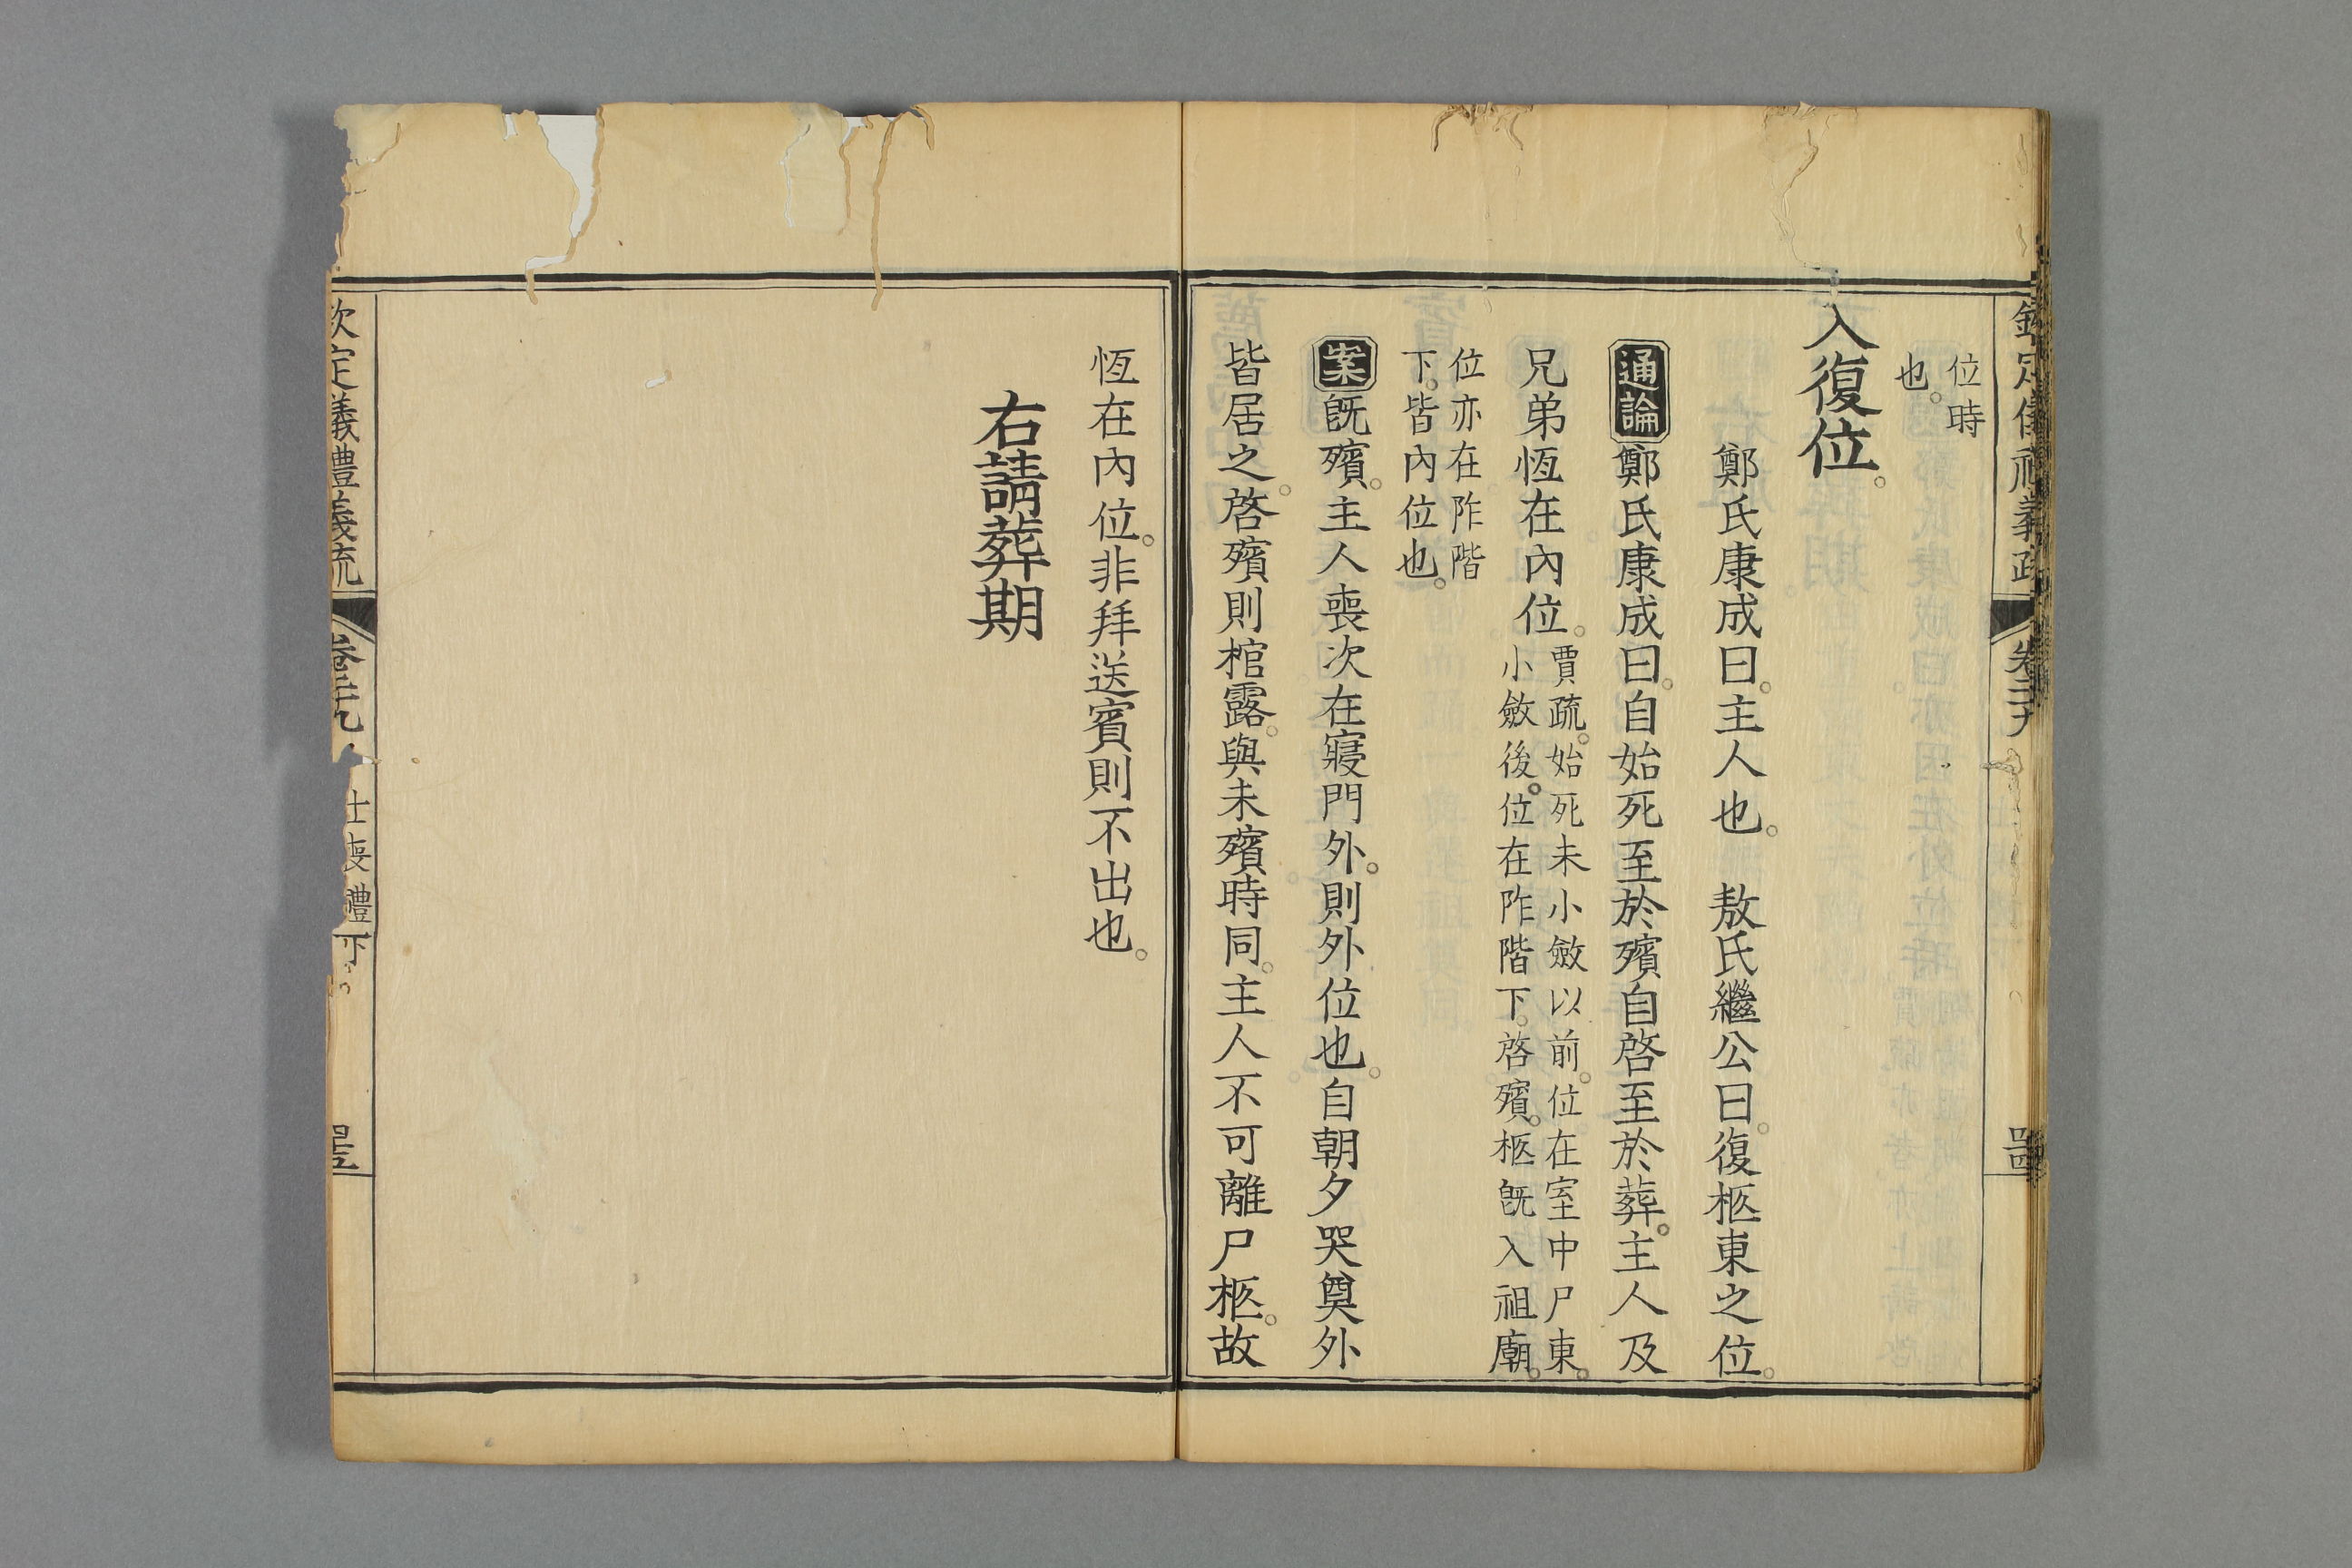 欽定儀禮義疏 卷二十九 𠁅四
位時
也。
入復位。
鄭氏康成曰。主人也。 敖氏繼公曰。復柩東之位。
通論鄭氏康成曰。自始死至於殯自啓至於葬。主人及
兄弟恆在內位。賈疏。始死未小斂以前。位在室中尸東。
小斂後。位在阼階下。啓殯。柩旣入祖廟。
位亦在阼階
下。皆內位也。
案旣殯。主人喪次在寢門外。則外位也。自朝夕哭奠外
皆居之。啓殯則棺露。與未殯時同。主人不可離尸柩。故
恆在內位。非拜送賓則不出也。
右請葬期
欽定儀禮義疏 卷二十九 士喪禮下